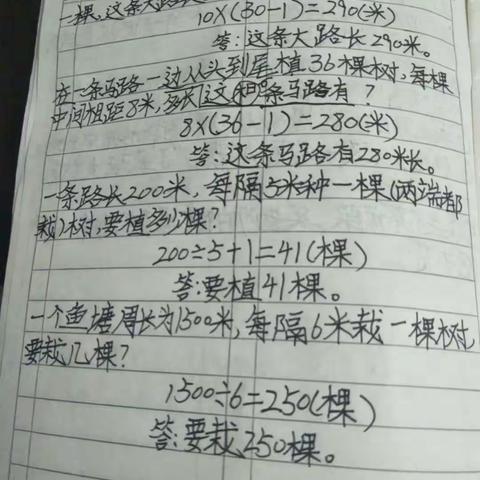 一棵,这条大路长
10×(30-1)=290(米)
答:这条大路长290米。
在一条马路一边从头到尾植36棵树,每棵
中间相距8米,这条马路有多长?
8×(36-1)=280(米)
答:这条马路有280米长。
一条路长200米,每隔5米种一棵(两端都
栽)树,要植多少棵?
200÷5+1=41(棵)
答:要植41棵。
一个鱼塘周长为1500米,每隔6米栽一棵树,
要栽几棵?
1500÷6=250(棵)
答:要栽250棵。